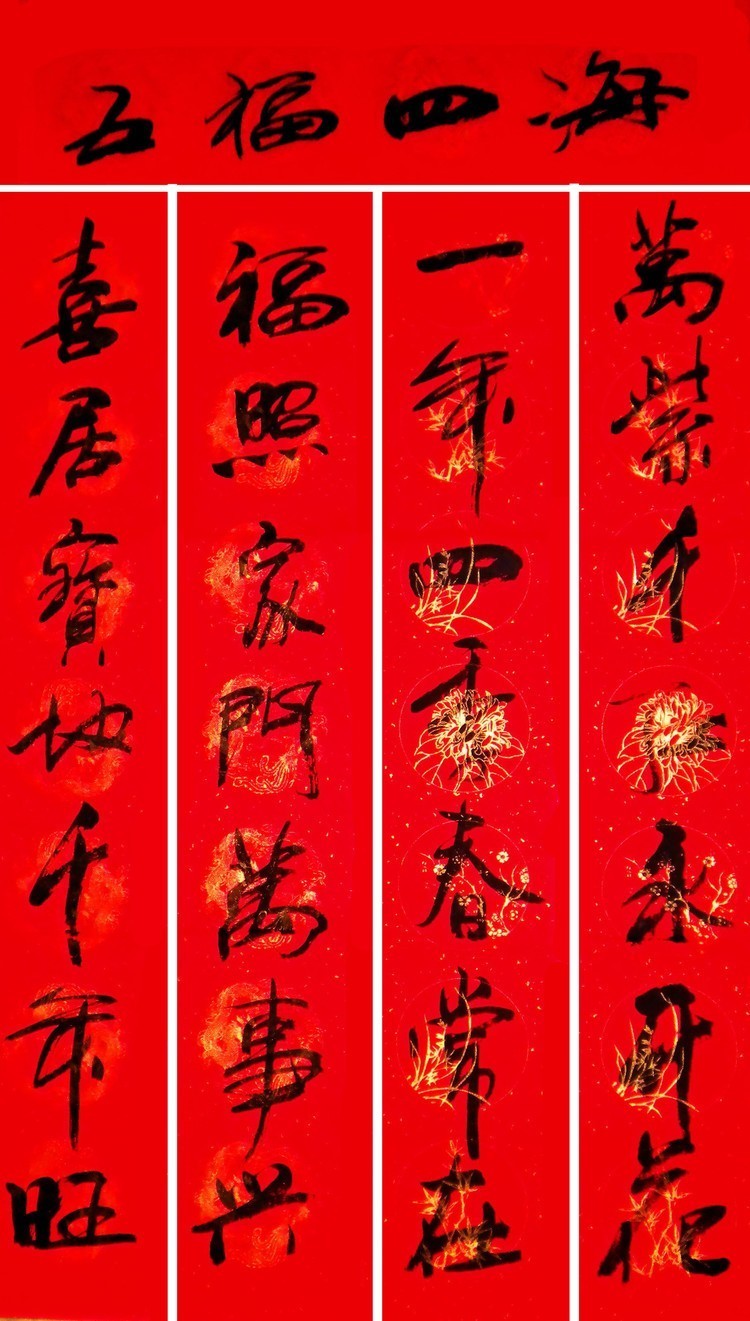 五福四海
喜居寶地千年旺
福照家門萬事兴
一年四季春常在
萬紫千红永开花